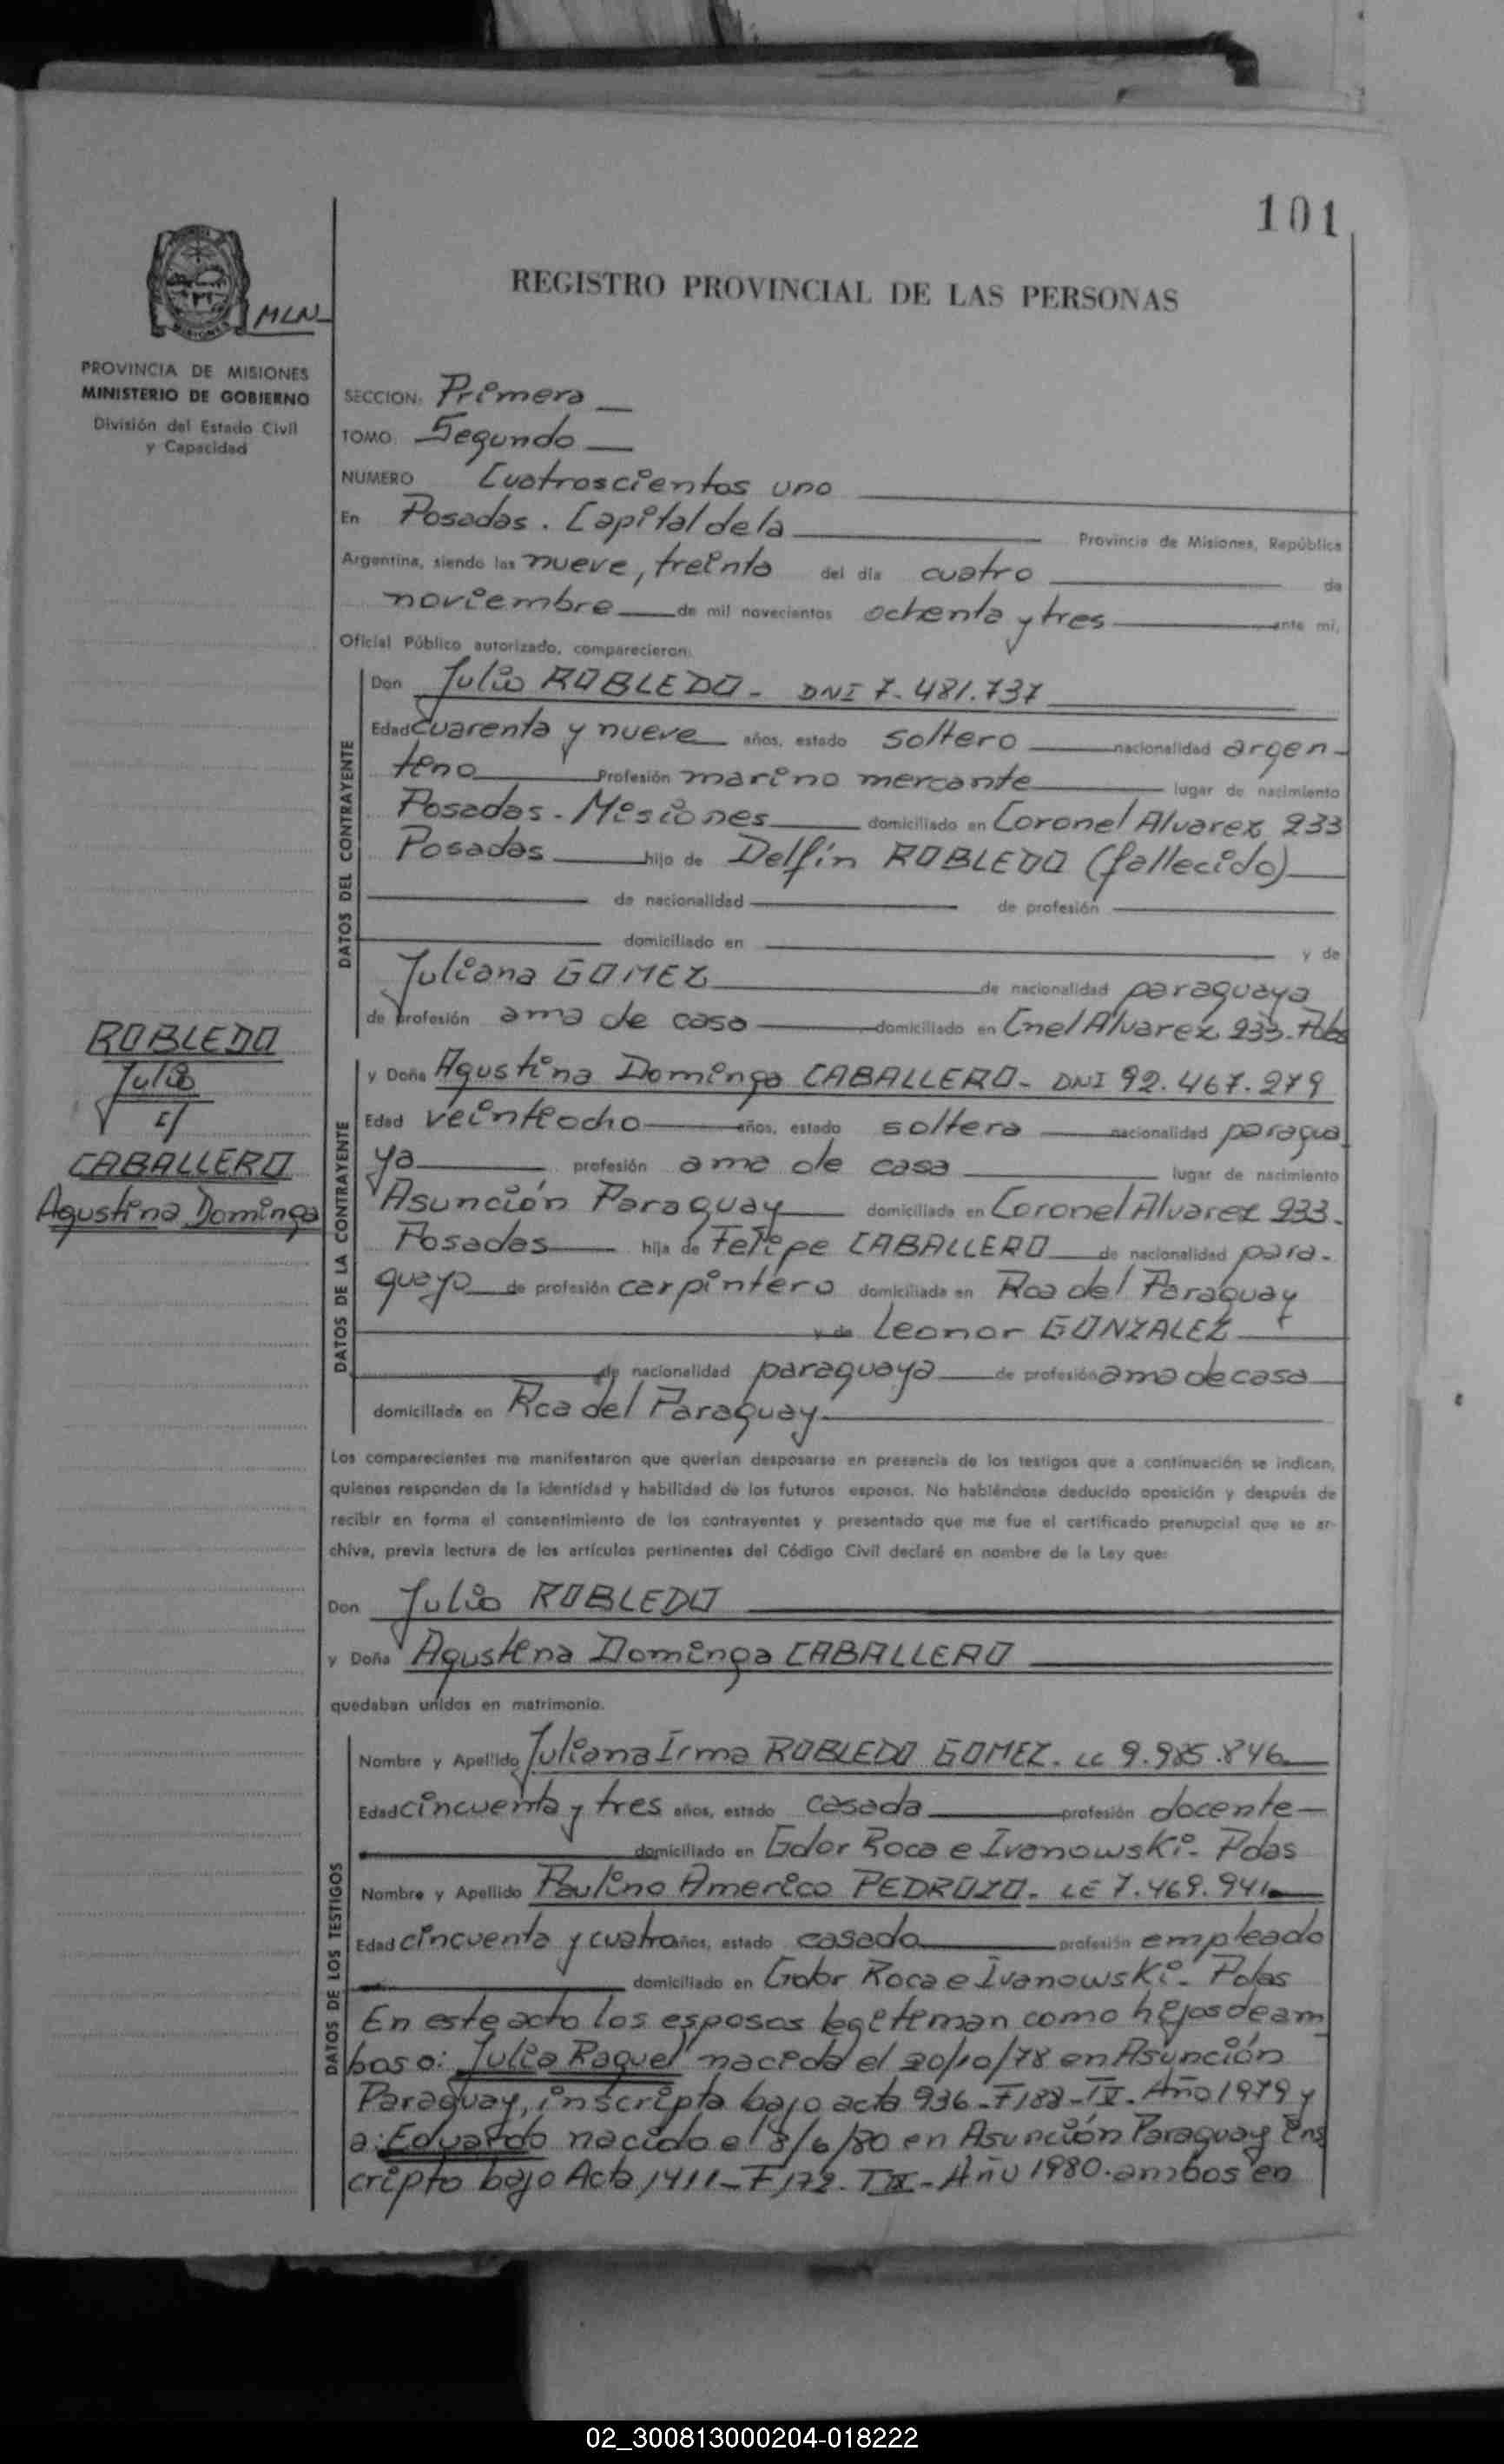 101
REGISTRO PROVINCIAL DE LAS PERSONAS
MLN
PROVINCIA DE MISIONES
MINISTERIO DE GOBIERNO
División del Estado Civil
y Capacidad
SECCION: Primera
TOMO Segundo
NUMERO Cuatroscientos uno
En Posadas. Capital de la Provincia de Misiones, República
Argentina, siendo las nueve, treinta del día cuatro de
noviembre de mil novecientos ochenta y tres ante mi,
Oficial Público autorizado, comparecieron:
DATOS DEL CONTRAYENTE
Don Julio ROBLEDO - DNI 7.481.737
Edad cuarenta y nueve años, estado soltero nacionalidad argen-
tino Profesión marino mercante lugar de nacimiento
Posadas - Misiones domiciliado en Coronel Alvarez 233
Posadas hijo de Delfín ROBLEDO (fallecido)
de nacionalidad de profesión
domiciliado en y de
Juliana GOMEZ de nacionalidad paraguaya
de profesión ama de casa domiciliado en Cnel Alvarez 233. Pdas
ROBLEDO
Julio
c/
CABALLERO
Agustina Dominga
DATOS DE LA CONTRAYENTE
y Doña Agustina Dominga CABALLERO - DNI 92.467.279
Edad veintiocho años, estado soltera nacionalidad paragua
ya profesión ama de casa lugar de nacimiento
Asunción Paraguay domiciliada en Coronel Alvarez 233.
Posadas hija de Felipe CABALLERO de nacionalidad para-
guayo de profesión carpintero domiciliada en Rca del Paraguay
y de Leonor GONZALEZ
de nacionalidad paraguaya de profesión ama de casa
domiciliada en Rca del Paraguay
Los comparecientes me manifestaron que querían desposarse en presencia de los testigos que a continuación se indican,
quienes responden de la identidad y habilidad de los futuros esposos. No habiéndose deducido oposición y después de
recibir en forma el consentimiento de los contrayentes y presentado que me fue el certificado prenupcial que se ar-
chiva, previa lectura de los artículos pertinentes del Código Civil declaré en nombre de la Ley que:
Don Julio ROBLEDO
y Doña Agustina Dominga CABALLERO
quedaban unidos en matrimonio.
DATOS DE LOS TESTIGOS
Nombre y Apellido Juliana Irma ROBLEDO GOMEZ. LC 9.985.846
Edad cincuenta y tres años, estado casada profesión docente
domiciliado en Gdor Roca e Ivanowski - Pdas
Nombre y Apellido Paulino Americo PEDROZO - LE 7.469.941
Edad cincuenta y cuatro años, estado casado profesión empleado
domiciliado en Gobr Roca e Ivanowski - Pdas
En este acto los esposos legitiman como hijos de am
bos a: Julia Raquel nacida el 20/10/78 en Asunción
Paraguay, inscripta bajo acta 936 - F188 - T IV - Año 1979 y
a: Eduardo nacido el 8/6/80 en Asunción Paraguay Ins
cripto bajo Acta 1411 - F172 - T IX - Año 1980. ambos en
02_300813000204-018222